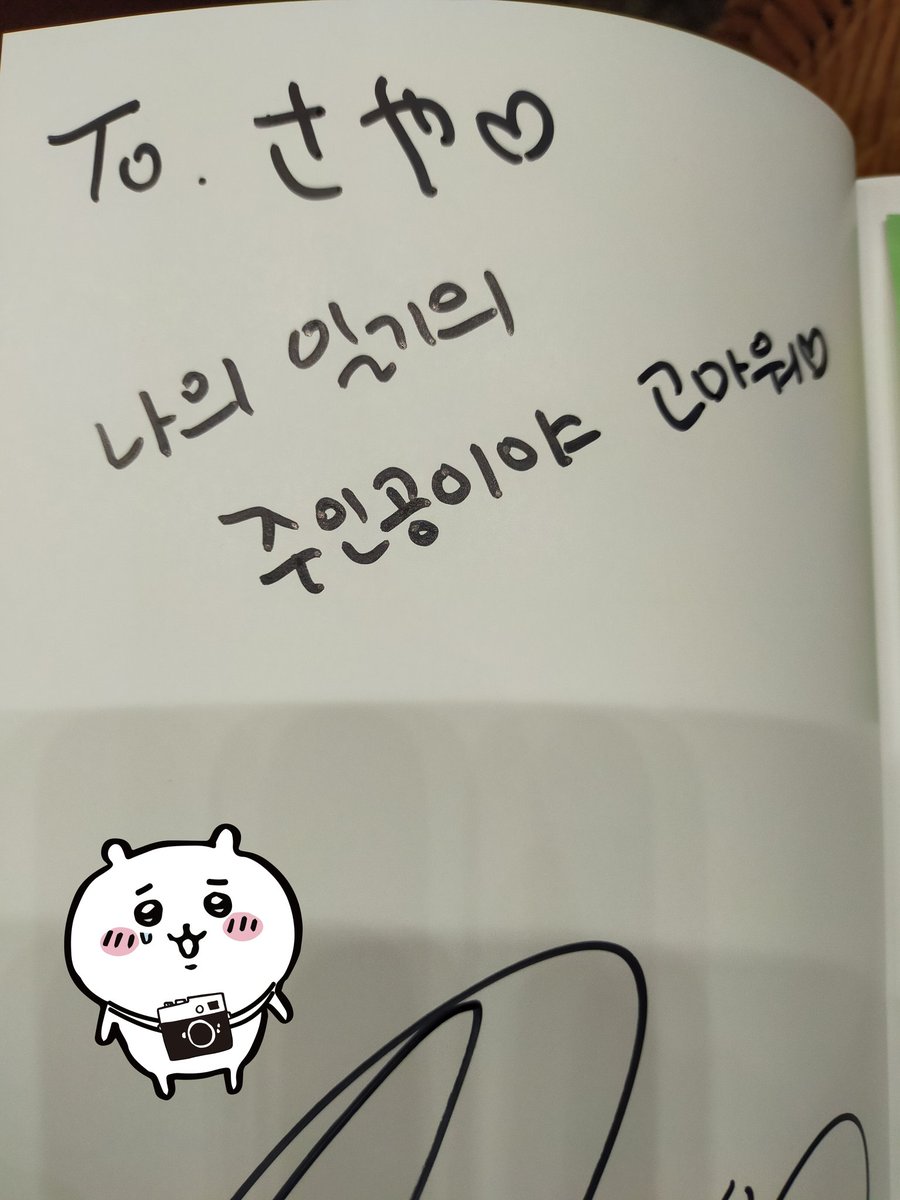 To. さや♡
나의 일기의
주인공이야 고마워♡